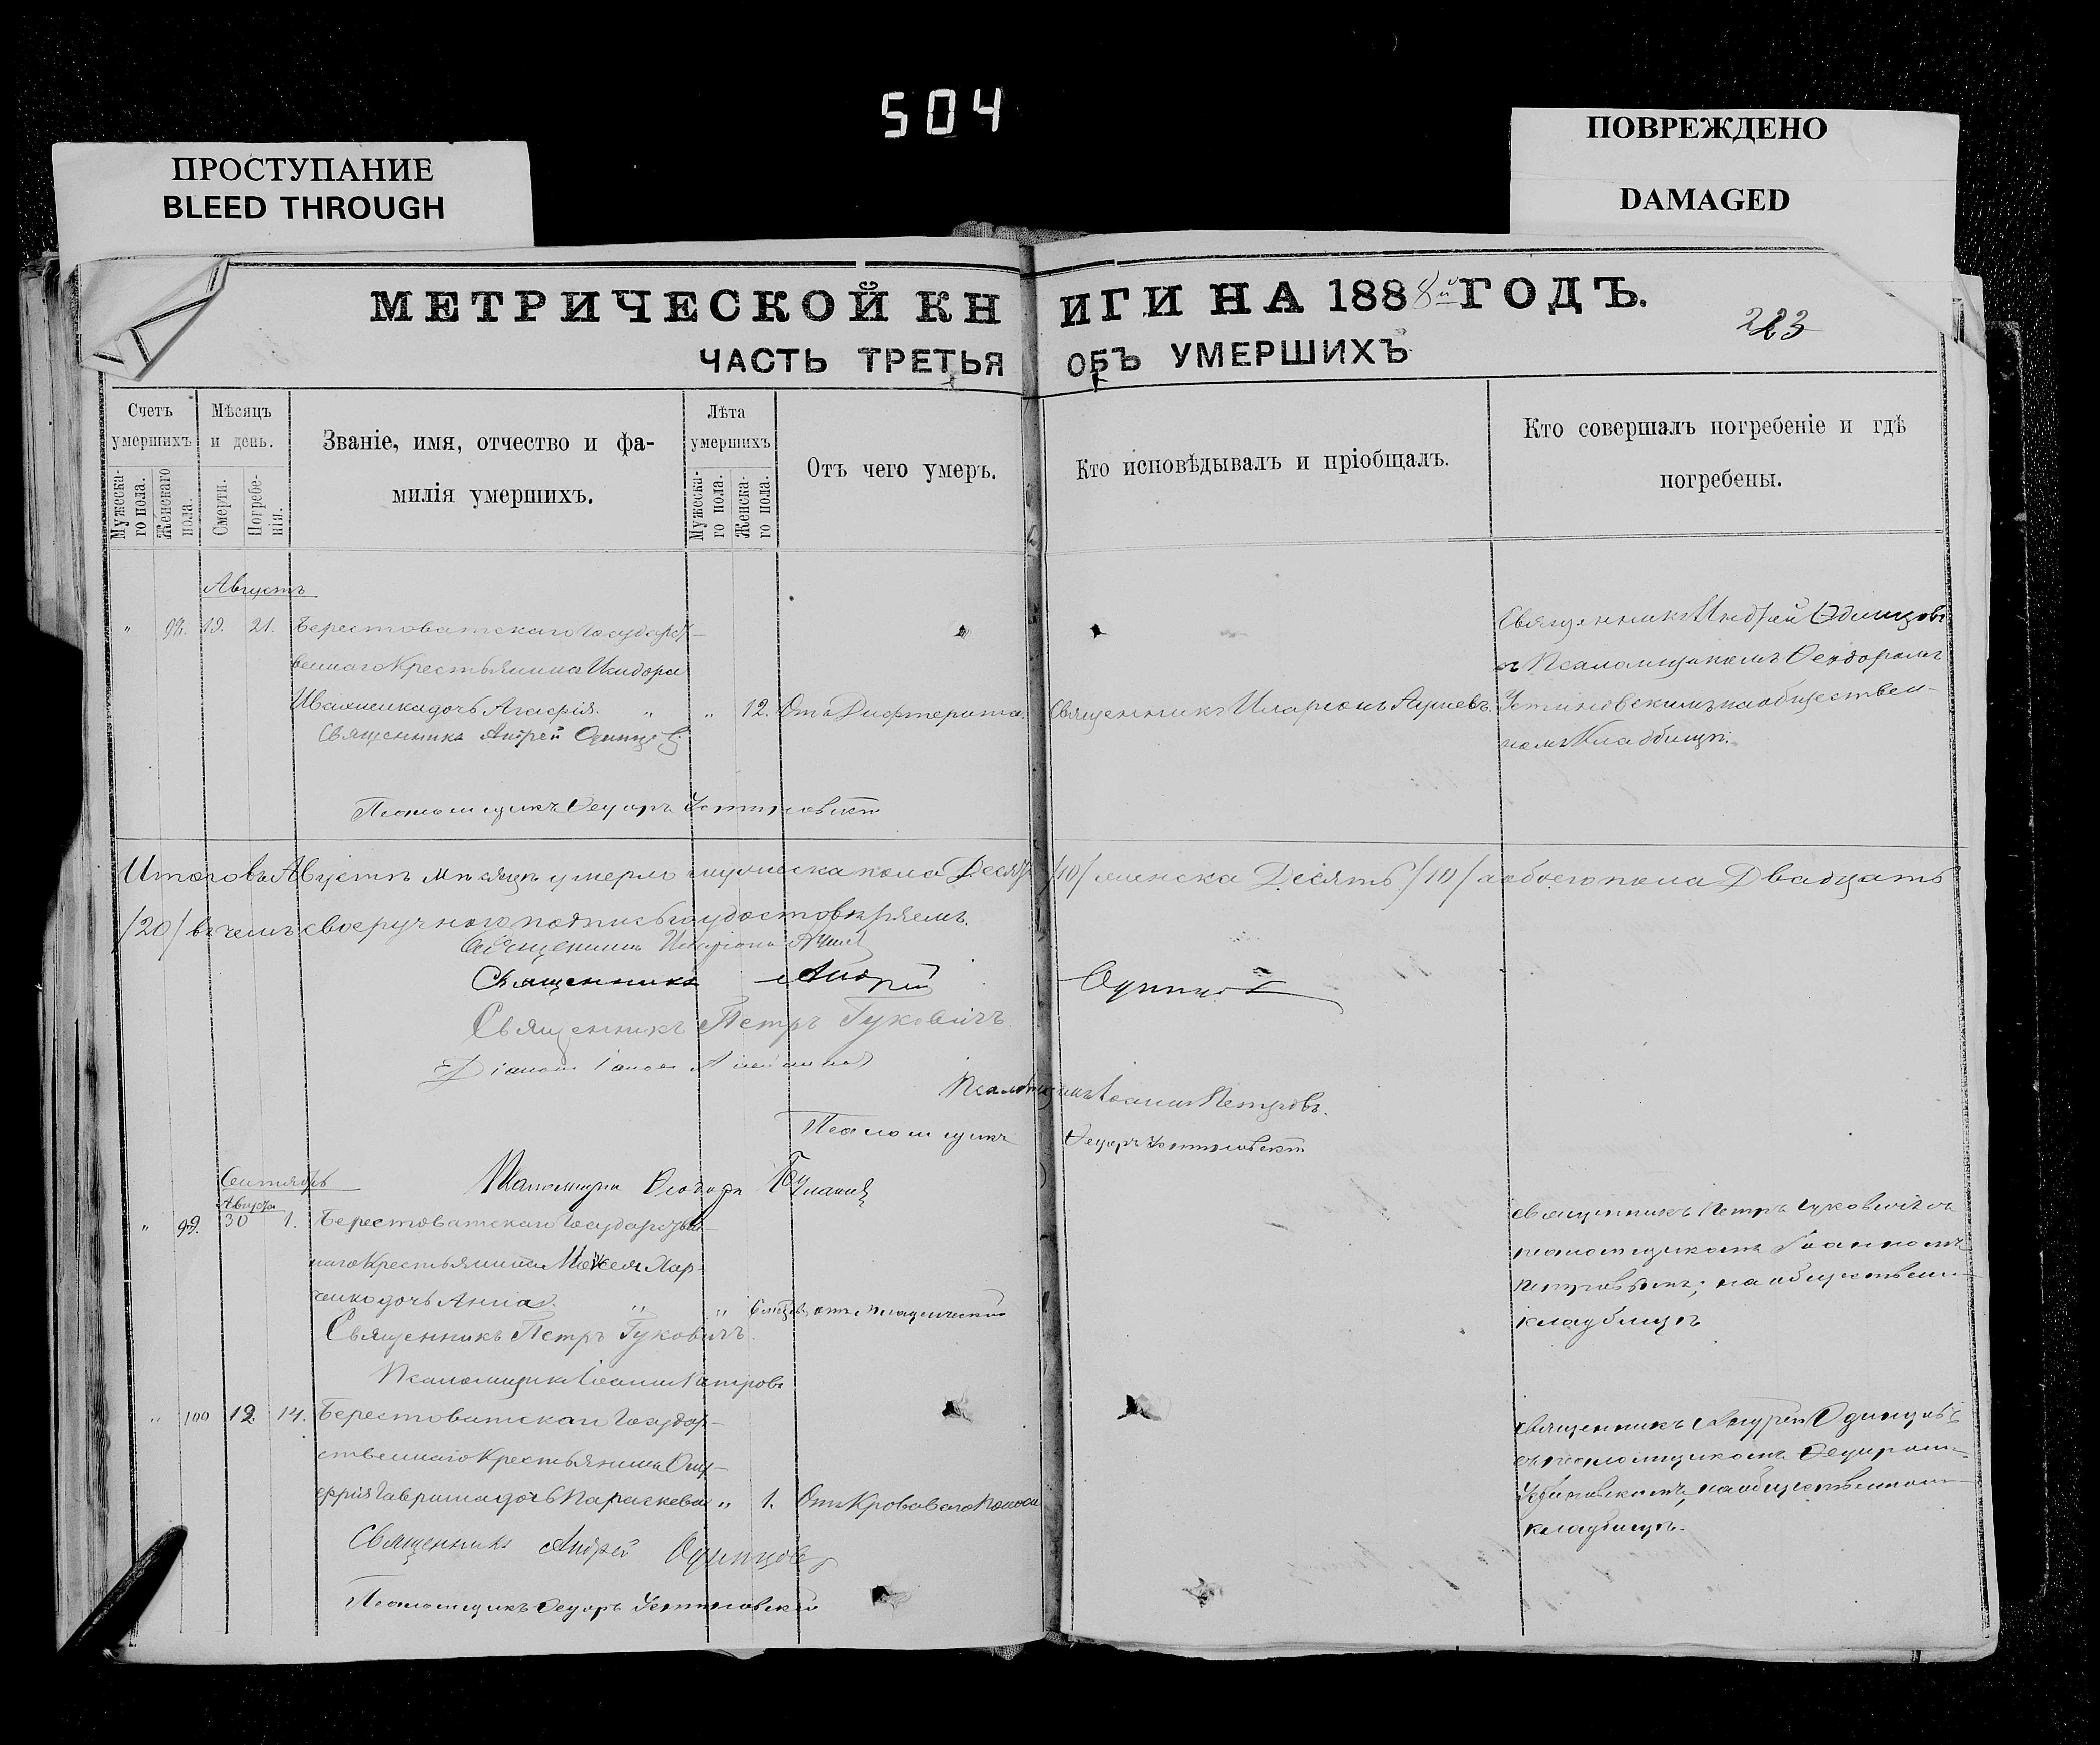 504
ПРОСТУПАНИЕ
BLEED THROUGH
ПОВРЕЖДЕНО
DAMAGED
МЕТРИЧЕСКОЙ КНИГИ НА 1888й ГОДЪ.
223
ЧАСТЬ ТРЕТЬЯ ОБЪ УМЕРШИХЪ
Счетъ умершихъ
Мужескаго пола.
Женскаго пола.
Мѣсяцъ и день.
Смерти.
Погребенія.
Званіе, имя, отчество и фамилія умершихъ.
Лѣта умершихъ
Мужескаго пола.
Женскаго пола.
Отъ чего умеръ.
Кто исповѣдывалъ и пріобщалъ.
Кто совершалъ погребеніе и гдѣ
погребены.
Августъ
" 98. 19. 21. Берестоватскаго Государст-
веннаго Крестьянина Исидора
Иваненка дочь Агафія " " 12. Отъ Дифтерита. Священникъ Иларіонъ
Священникъ Андрей Одинцовъ
Священникъ Андрей Одинцовъ
съ Псаломщикомъ Феодоромъ
Устиновскимъ на обществен-
номъ Кладбищѣ.
Псаломщикъ Федоръ Устиновскій
Итого въ Августѣ мѣсяцѣ умерло мужеска пола Десять /10/ женска Десять /10/ а обоего пола Двадцать
/20/ въ чемъ своеручною подписью удостовѣряемъ.
Священникъ Иларіонъ
Священникъ Андрей Одинцовъ
Священникъ Петръ Гуковичъ.
Діаконъ
Псаломщикъ Іоаннъ Петровъ.
Псаломщикъ Федоръ Устиновскій
Псаломщикъ
Сентябрь
Августа
" 99. 30 1. Берестоватскаго Государствен-
наго Крестьянина Моисея Хар-
ченко дочь Анна " " 6 мѣсяц. отъ младенческой
Священникъ Петръ Гуковичъ.
Псаломщикъ Іоаннъ Петровъ
священникъ Петръ Гуковичъ съ
псаломщикомъ Іоанномъ
Петровымъ; на обществен-
кладбищѣ
" 100 12. 14. Берестоватскаго Государ-
ственнаго Крестьянина Ону-
фрія Гавриша дочь Параскева " 1. Отъ Кроваваго Поноса
Священникъ Андрей Одинцовъ
Псаломщикъ Федоръ Устиновскій
священникъ Андрей Одинцовъ
съ псаломщикомъ Федоромъ
Устиновскимъ, на общественномъ
кладбищѣ.